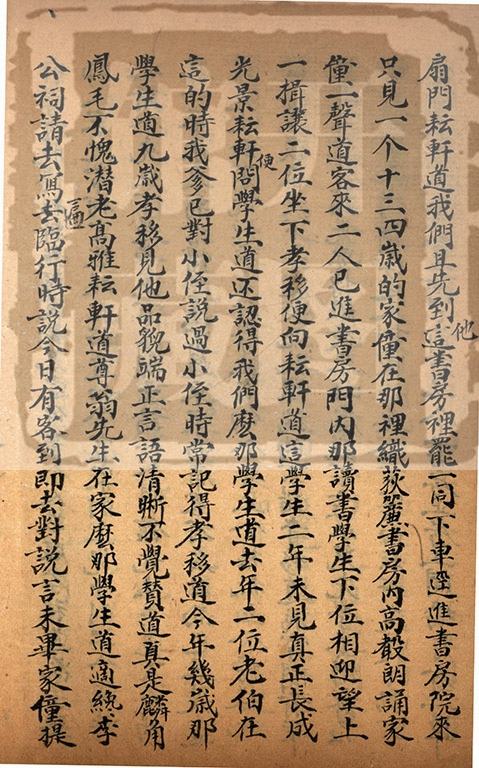 扇門耘軒道我們且先到他這書房裡罷一同下車逕進書房院來
只見一个十三四歲的家僮在那裡織荻簾書房內高殸朗誦家
僮一聲道客來二人已進書房門內那讀書學生下位相迎望上
一揖讓二位坐下孝移便向耘軒道這學生二年未見真正長成
光景耘軒便問學生道还認得我們麼那學生道去年二位老伯在
這的時我爹已對小侄說過小侄時常記得孝移道今年幾歲那
學生道九歲孝移見他品貌端正言語清晰不覺賛道真是麟角
鳳毛不愧潜老高雅耘軒道尊翁先生在家麼那學生道適纔李
公祠請去寫匾去臨行時說今日有客到即去對說言未畢家僮提